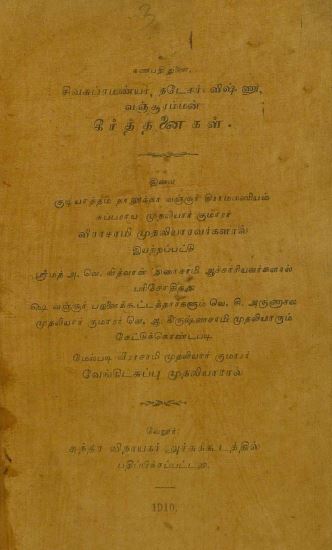 3
கணபதி துணை.
சிவசுப்பிரமண்யர், நடேசர், விஷ்ணு,
வஞ்சூரம்மன்
கீர்த்தனைகள்.
இவை
குடியாத்தம் தாலூக்கா வஞ்சூர் கிராமமணியம்
சுப்பராய முதலியார் குமாரர்
வீராசாமி முதலியாரவர்களால்
இயற்றப்பட்டு
ஸ்ரீமத் அ. வெ. வித்வான் துரைசாமி ஆச்சாரியவர்களால்
பரிசோதித்து
ஷெ வஞ்சூர் பஜனைக்கூட்டத்தார்களும் வெ. கி. அருணாசல
முதலியார் குமாரர் வெ. ஆ. கிருஷ்ணசாமி முதலியாரும்
கேட்டுக்கொண்டபடி
மேல்படி வீராசாமி முதலியார் குமாரர்
வேங்கிடசுப்பு முதலியாரால்
வேலூர்:
சுந்தர விநாயகர் அச்சுக்கூடத்தில்
பதிப்பிக்கப்பட்டது.
1910.